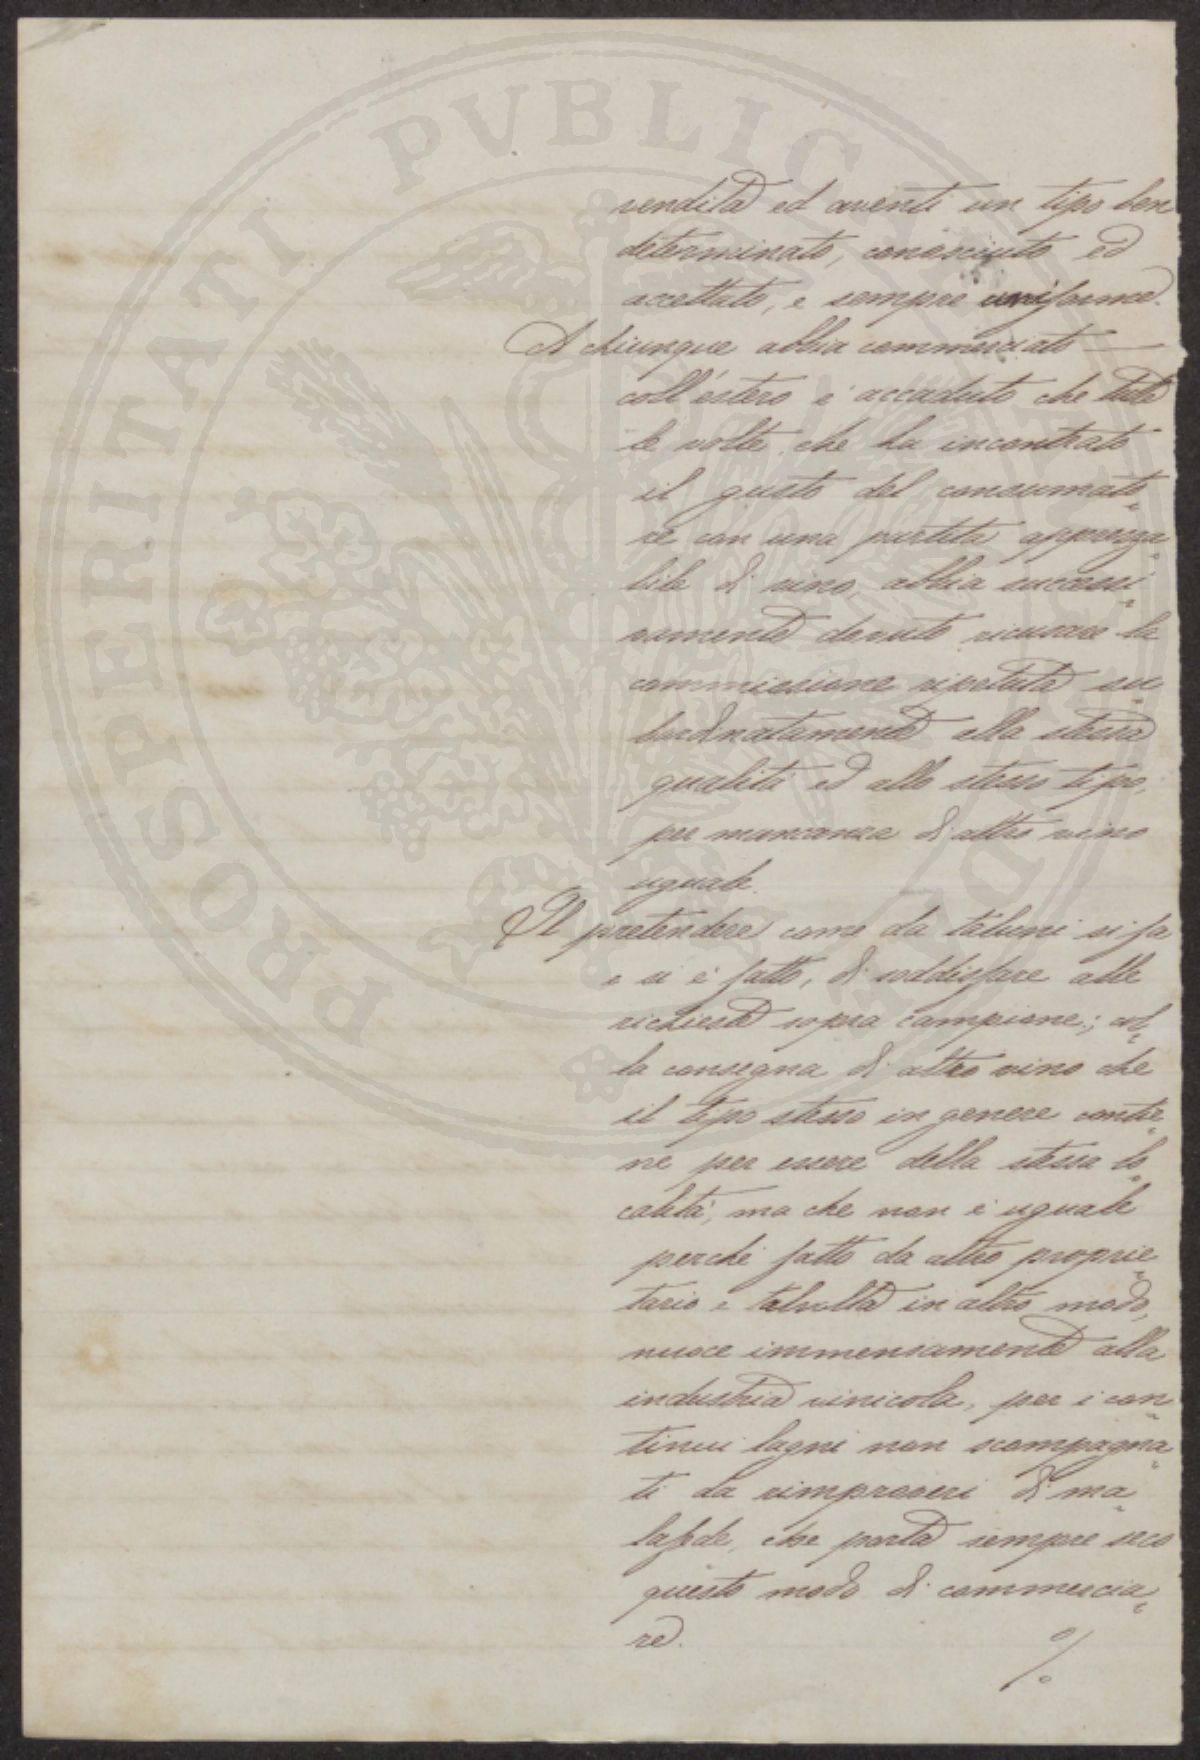 vendita ed aventi un tipo ben
determinato, conosciuto ed
accettato, e sempre uniforme.
A chiunque abbia commerciato —
coll'estero è accaduto che tutte
le volte che ha incontrato
il gusto del consumato
re con una partita apprezza
bile di vino, abbia successi
vamente dovuto ricusare la
commissione ripetuta su
bordinatamente alla stessa
qualità ed allo stesso tipo,
per mancanza di altro vino
uguale.
Il pretendere come da taluni si fa
e si è fatto, di soddisfare alle
richieste sopra campione; col
la consegna di altro vino che
il tipo stesso in genere contie
ne per essere della stessa lo
calità, ma che non è uguale
perchè fatto da altro proprie
tario e talvolta in altro modo,
nuoce immensamente alla
industria vinicola, per i con
tinui lagni non scompagna
ti da rimproveri di ma
lafede, che porta sempre seco
questo modo di commercia
re.
%
PROSPERITATI PVBLICAE